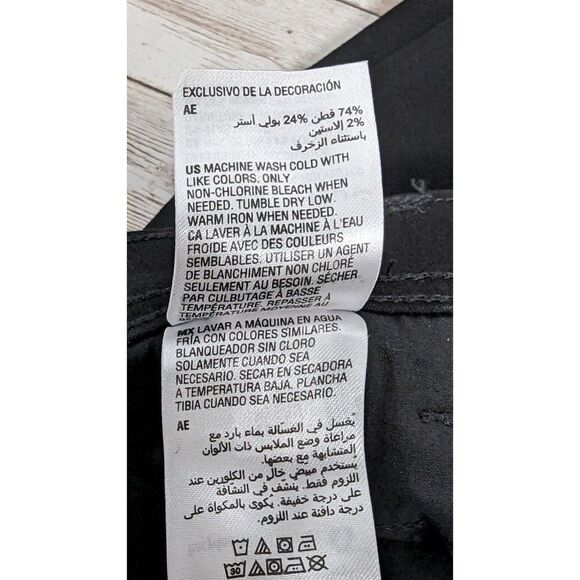 EXCLUSIVO DE LA DECORACIÓN
AE
74% قطن 24% بولي أستر
2% إلاستين
باستثناء الزخرف
US MACHINE WASH COLD WITH
LIKE COLORS. ONLY
NON-CHLORINE BLEACH WHEN
NEEDED. TUMBLE DRY LOW.
WARM IRON WHEN NEEDED.
CA LAVER À LA MACHINE À L'EAU
FROIDE AVEC DES COULEURS
SEMBLABLES. UTILISER UN AGENT
DE BLANCHIMENT NON CHLORÉ
SEULEMENT AU BESOIN. SÉCHER
PAR CULBUTAGE À BASSE
TEMPÉRATURE. REPASSER À
TEMPÉRATURE MOYENNE AU
MX LAVAR A MÁQUINA EN AGUA
FRÍA CON COLORES SIMILARES.
BLANQUEADOR SIN CLORO
SOLAMENTE CUANDO SEA
NECESARIO. SECAR EN SECADORA
A TEMPERATURA BAJA. PLANCHA
TIBIA CUANDO SEA NECESARIO.
AE
يُغسل في الغسّالة بماء بارد مع
مراعاة وضع الملابس ذات الألوان
المتشابهة مع بعضها.
يُستخدم مبيّض خالٍ من الكلورين عند
اللزوم فقط. ينشّف في النشّافة
على درجة خفيفة. يُكوى بالمكواة على
درجة دافئة عند اللزوم.
30